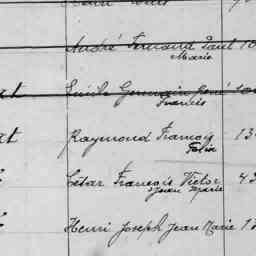 André Fernand Paul 10
Marie
Germain René
Francis
at Raymond Francis 13
Félix
César François Victor 43
Jean Marie
Henri Joseph Jean Marie 13